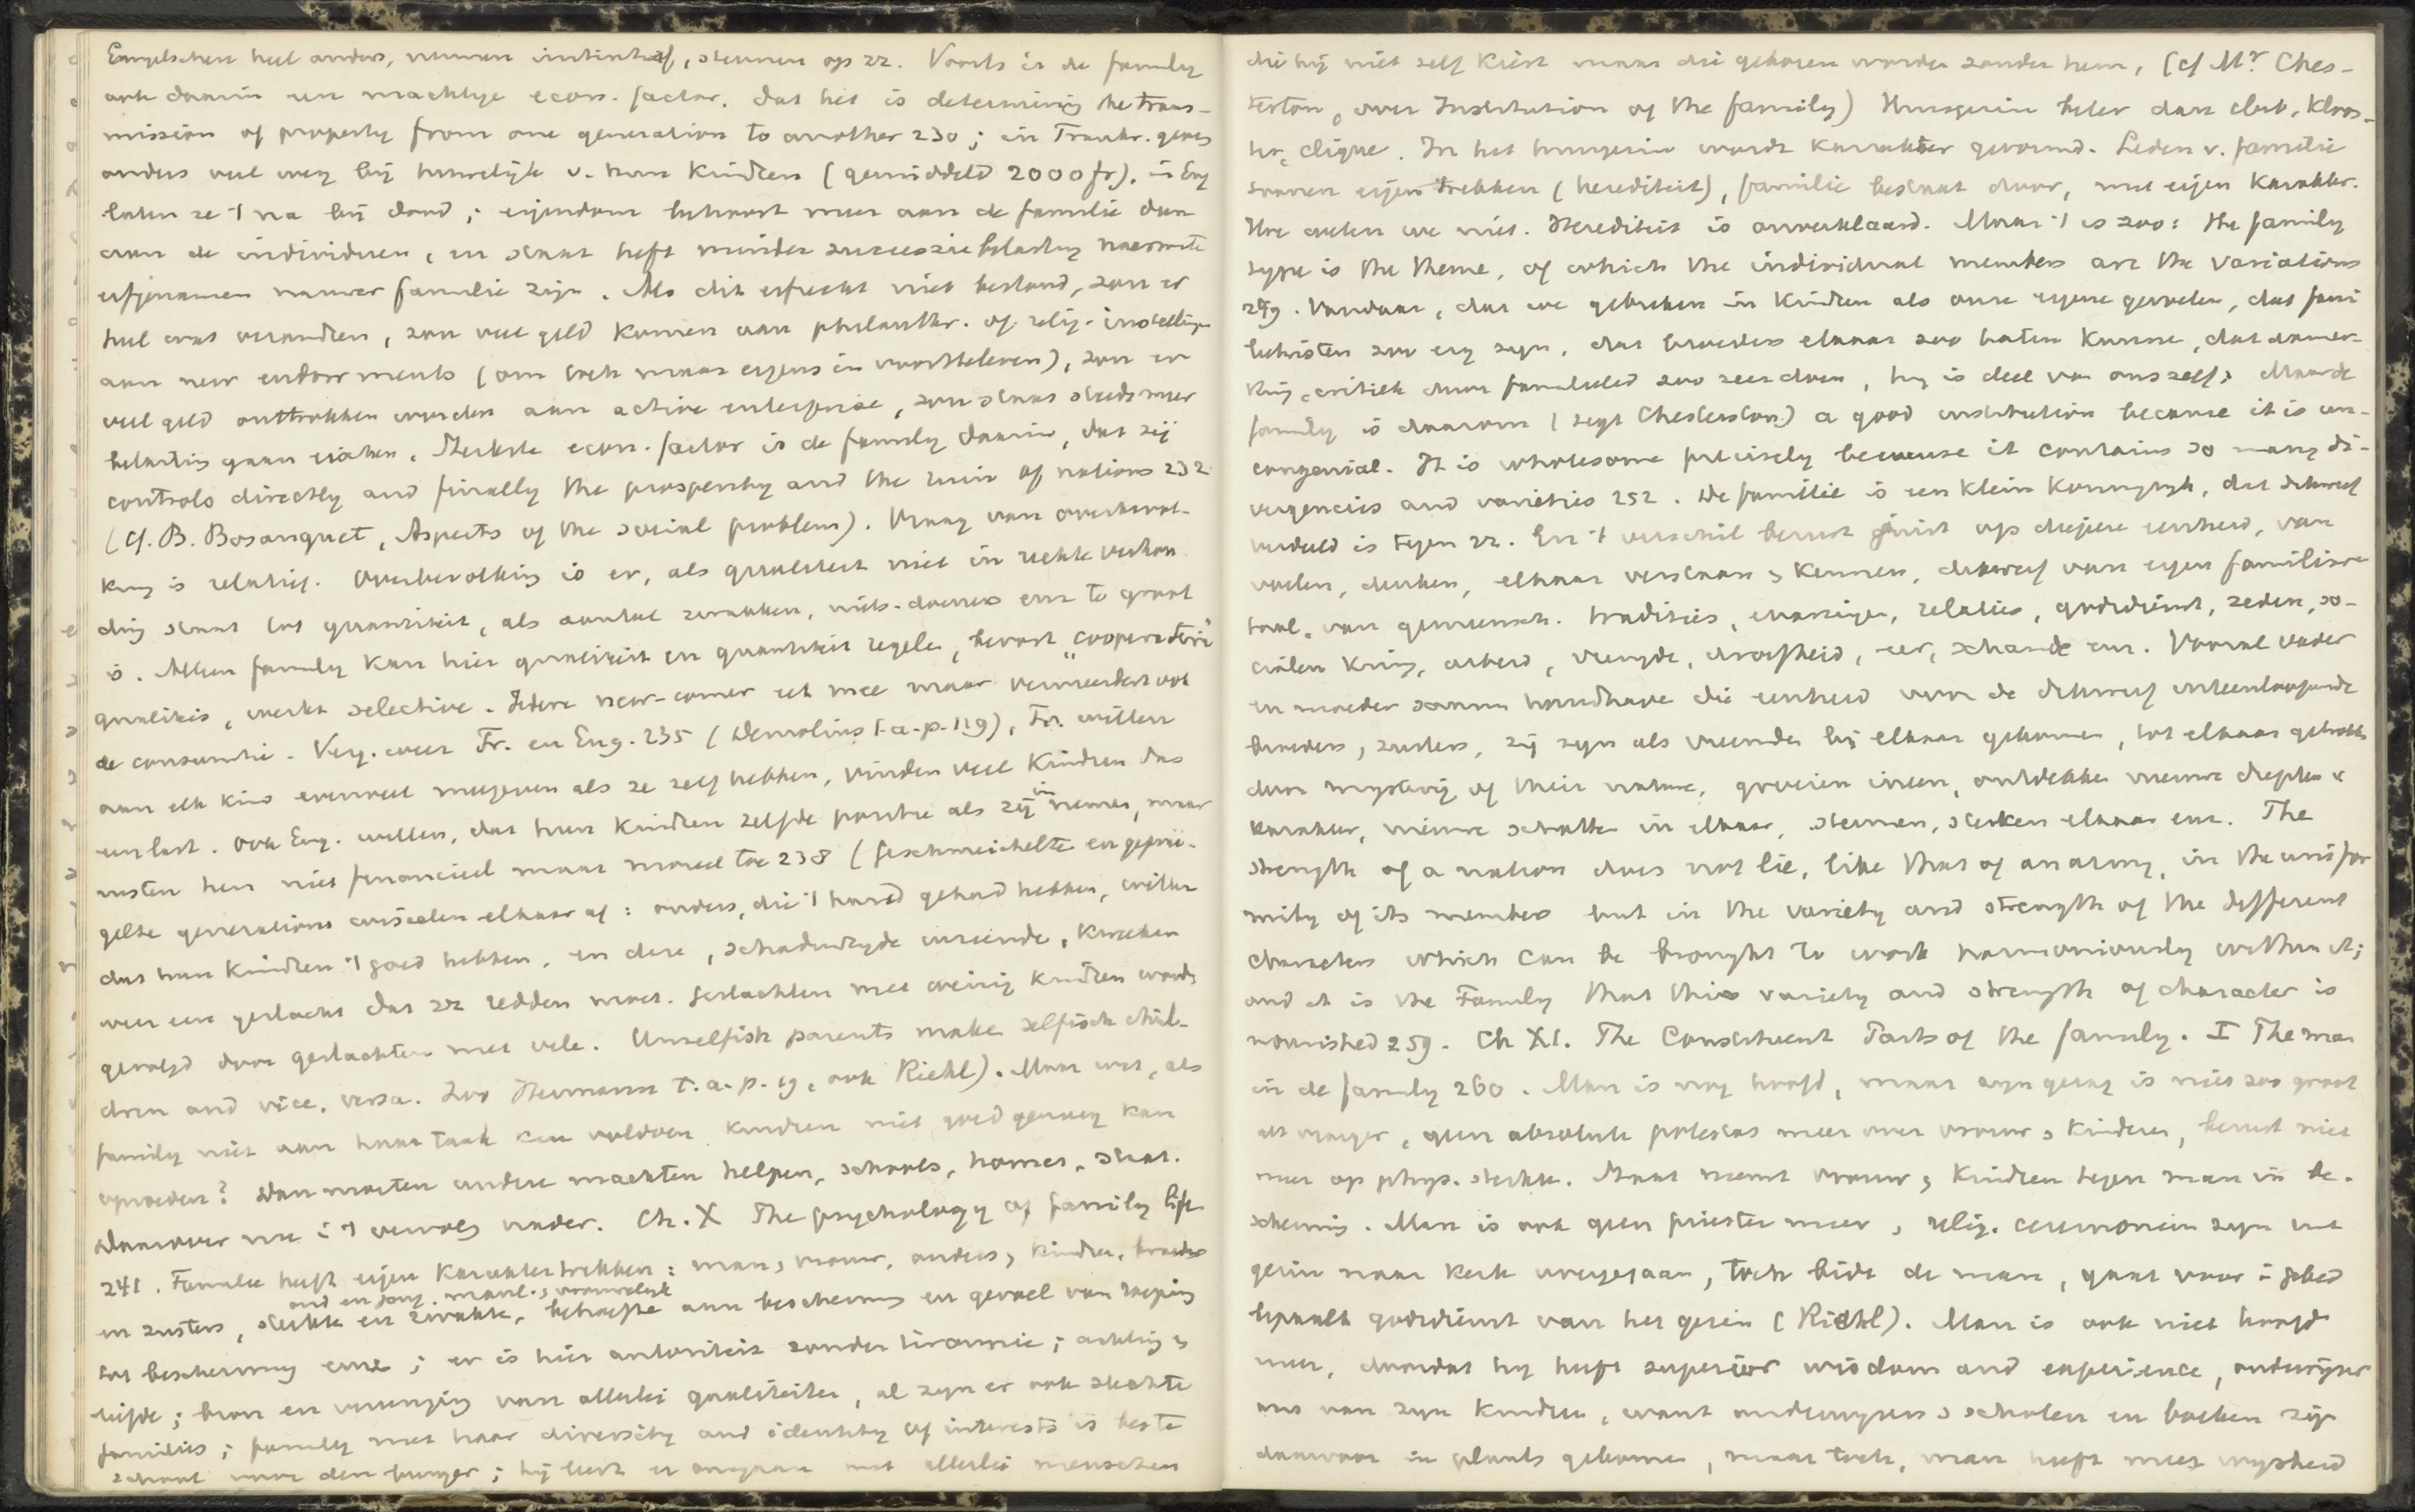 Engelschen heel anders, nemen initiatief, steunen op zz. Voorts is de family
ook daarin een machtige econ. factor, dat het is determining the trans-
mission of property from one generation to another 230; in Frankr. geven
ouders veel weg bij huwelijk v. hun kinderen (gemiddeld 2000 fr), in Eng
laten ze 't na bij dood; eigendom behoort meer aan de familie dan
aan de individuen, en staat heft minder successiebelasting naarmate
erfgenamen nauwer familie zijn. Als dit erfrecht niet bestond, zou er
heel wat veranderen, zou veel geld komen aan philanthr. of relig. instellingen
aan new endowments (om toch maar ergens in voort te leven), zou er
veel geld onttrokken worden aan active enterprise, zou staat steeds meer
belasting gaan eischen. Sterkste econ. factor is de family daarin, dat zij
controls directly and finally the prosperity and the ruin of nations 232
(cf. B. Bosanquet, Aspects of the social problem). Vraag van overbevol-
king is relatief. Overbevolking is er, als qualiteit niet in rechte verhou-
ding staat tot quantiteit, als aantal zwakken, niets-doeners enz te groot
is. Alleen family kan hier qualiteit en quantiteit regelen, kweekt „cooperative"
qualities, werkt selective. Iedere new-comer eet mee maar vermeerdert ook
de consumtie. Verg. weer Fr. en Eng. 235 (Demolins t.a.p. 119), Fr. willen
aan elk kind evenveel meegeven als ze zelf hebben, vinden veel kinderen dus
een last. Ook Eng. willen, dat hun kinderen zelfde positie als zij innemen, maar
rusten hen niet financieel maar moreel toe 238 (geschmeichelte en geprü-
gelte generations wisselen elkaar af: ouders, die 't hard gehad hebben, willen
dat hun kinderen 't goed hebben, en deze, schaduwzijde vreezende, kweeken
weer een geslacht dat zz redden moet. Geslachten met weinig kinderen worden
gevolgd door geslachten met vele. Unselfish parents make selfish chil-
dren and vice, versa. Zoo Heumann t.a.p. 19, ook Riehl). Maar wat, als
family niet aan haar taak kan voldoen kinderen niet goed genoeg kan
opvoeden? Dan moeten andere machten helpen, schools, homes, staat.
Daarover me i 't vervolg nader. Ch. X The psychology of family life
241. Familie heeft eigen karaktertrekken: man, vrouw, ouders, kinder, broeders
oud en jong, manl. , vrouwelijk
en zusters, sterke en zwakke, behoefte aan bescherming en gevoel van roeping
tot bescherming enz; er is hier autoriteit zonder tirannie; achting
liefde; bron en vereeniging van allerlei qualiteiten, al zijn er ook slechte
families; family met haar diversity and identity of interests is beste
school voor den burger; hij leert er omgaan met allerlei menschen
die hij niet zelf kiest maar die geboren worden zonder hem, (cf Mr. Ches-
terton, over Institution of the family) Huisgezin beter dan club, kloos-
ter, clique. In het huisgezin wordt karakter gevormd. Leden v. familie
toonen eigen trekken (herediteit), familie bestaat door, met eigen karakter.
Hoe weten we niet. Herediteit is onverklaard. Maar 't is zoo: the family
type is the theme, of which the individual members are the variations
249. Vandaar, dat we gebreken in kinderen als onze eigene gevoelen, dat fami
lietwisten zoo erg zijn, dat broeders elkaar zoo haten kunnen, dat aanmer-
king, critiek door familielid zoo zeer doen, hij is deel van onszelf. Maar de
family is daarom (zegt Chesterton) a good institution because it is un-
congenial. It is wholesome precisely because it contains so many di-
vergencies and varieties 252. De familie is een klein koninkrijk, dat dikwerf
verdeeld is tegen zz. En 't verschil berust juist op diepere eenheid, van
voelen, denken, elkaar verstaan, kennen, dikwerf van eigen familiare
taal, van gemeensch. tradities, relaties, godsdienst, zeden, so-
cialen kring, arbeid, vreugde, droefheid, eer, schande enz. Vooral vader
en moeder samen handhaven die eenheid voor de dikwerf uiteenloopende
broeders, zusters, zij zijn als vreemden bij elkaar gekomen, tot elkaar getrokken
door mystery of their nature, groeien ineen, ontdekken nieuwe diepten v
karakter, nieuwe schatten in elkaar, steunen, sterken elkaar enz. The
strength of a nation does not lie, like that of an army, in the unifor
mity of its members but in the variety and strength of the different
characters which can be brought to work harmoniously within it;
and it is the Family that this variety and strength of character is
nourished 259. Ch XI. The Constituent Parts of the family. I The man
in de family 260. Man is nog hoofd, maar zijn gezag is niet zoo groot
als vroeger, geen absolute potestas meer over vrouw, kinderen, berust niet
meer op phys. sterkte. Staat neemt vrouw, kinderen tegen man in be-
scherming. Man is ook geen priester meer, relig. ceremoniën zijn uit
gezin naar kerk overgegaan, toch bidt de man, gaat voor i gebed
bepaalt godsdienst van het gezin (Riehl). Man is ook niet hoofd
meer, doordat hij heeft superior wisdom and experience, onderwijzer
ens van zijn kinderen, want onderwijzers, scholen en boeken zijn
daarvoor in plaats gekomen, maar toch, man heeft meer wijsheid